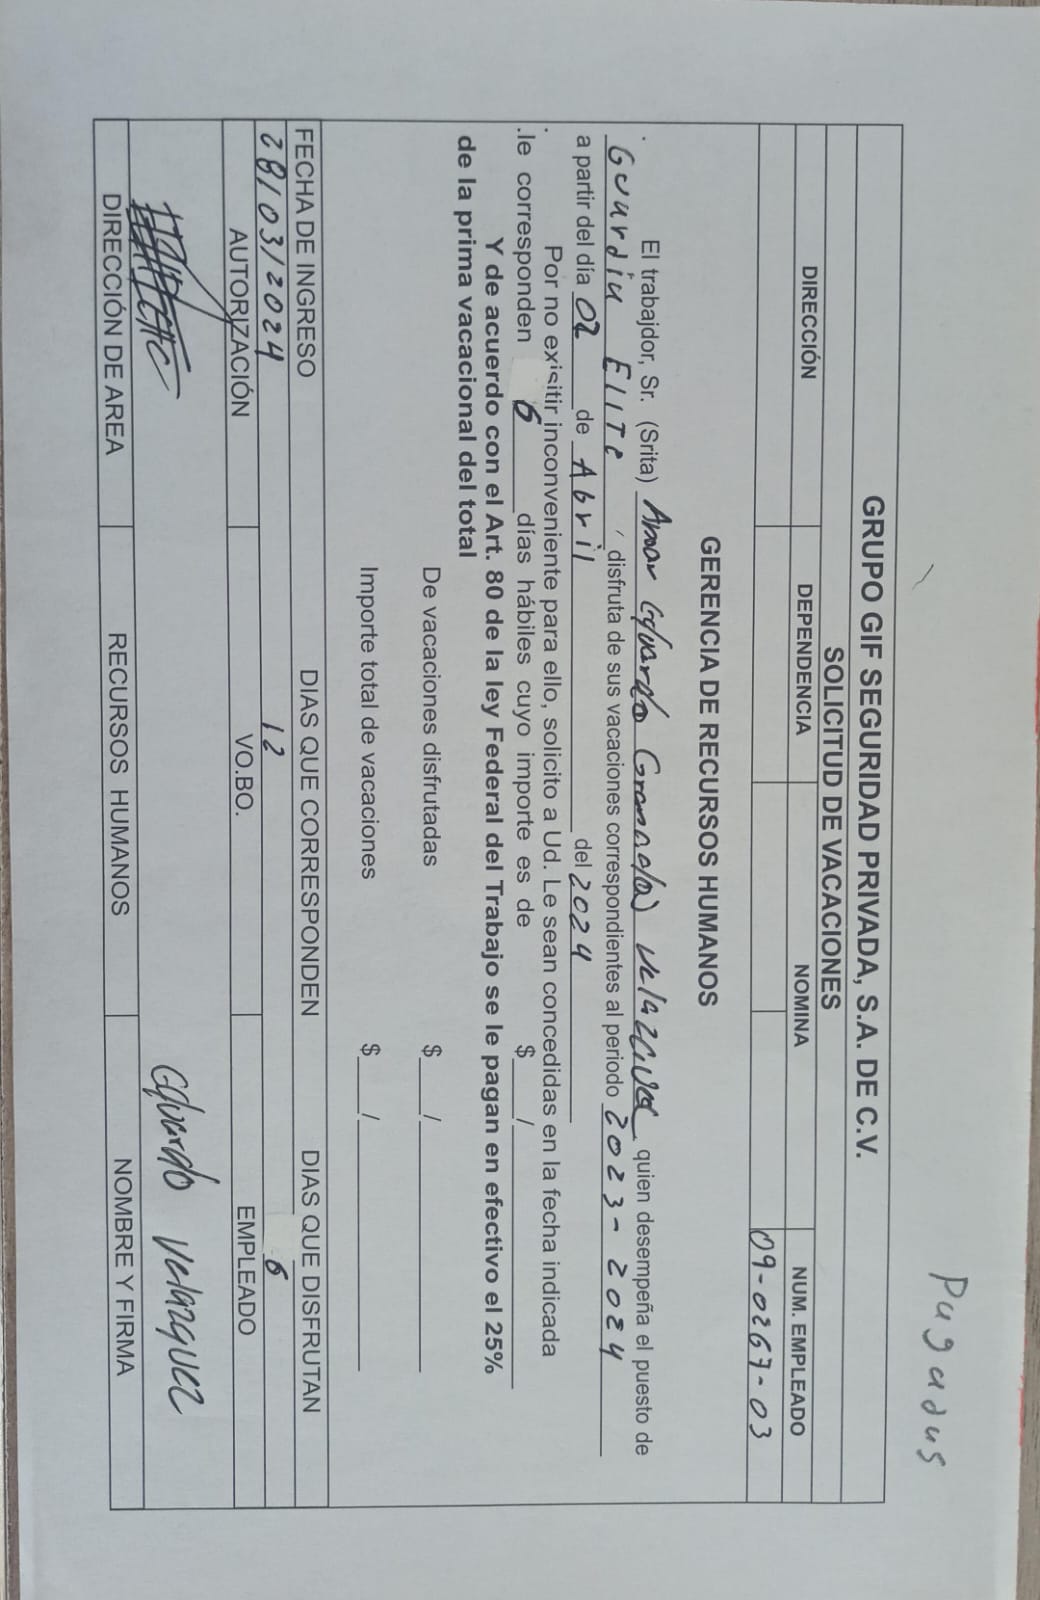 Pagadas
GRUPO GIF SEGURIDAD PRIVADA, S.A. DE C.V.
SOLICITUD DE VACACIONES
DIRECCIÓN DEPENDENCIA NOMINA NUM. EMPLEADO
09-0267-03
GERENCIA DE RECURSOS HUMANOS
El trabajdor, Sr. (Srita) Eduardo Velazquez quien desempeña el puesto de
Guardia Elite disfruta de sus vacaciones correspondientes al periodo 2023-2024
a partir del día 02 de Abril del 2024
Por no exisitir inconveniente para ello, solicito a Ud. Le sean concedidas en la fecha indicada
.le corresponden 6 días hábiles cuyo importe es de $ /
Y de acuerdo con el Art. 80 de la ley Federal del Trabajo se le pagan en efectivo el 25%
de la prima vacacional del total
De vacaciones disfrutadas $ /
Importe total de vacaciones $ /
FECHA DE INGRESO DIAS QUE CORRESPONDEN DIAS QUE DISFRUTAN
28/03/2024 12 6
AUTORIZACIÓN VO.BO. EMPLEADO
Eduardo Velazquez
DIRECCIÓN DE AREA RECURSOS HUMANOS NOMBRE Y FIRMA